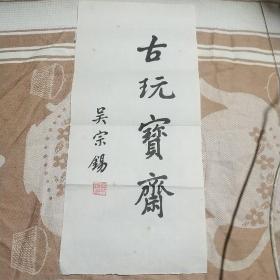 古玩寶齋
吴宗錫